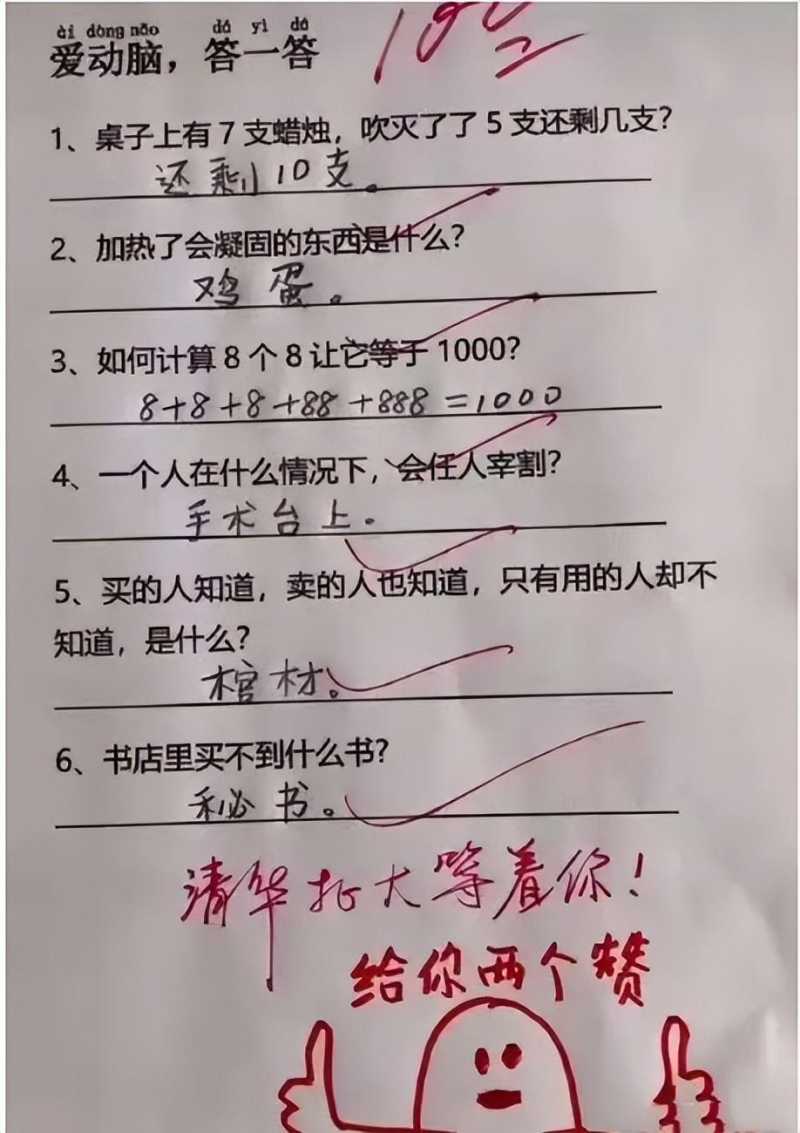 ài dòng nǎo dá yì dá
爱动脑，答一答
100
1、桌子上有7支蜡烛，吹灭了了5支还剩几支？
还剩10支。
2、加热了会凝固的东西是什么？
鸡蛋。
3、如何计算8个8让它等于1000？
8+8+8+88+888=1000
4、一个人在什么情况下，会任人宰割？
手术台上.
5、买的人知道，卖的人也知道，只有用的人却不
知道，是什么？
棺材。
6、书店里买不到什么书？
秘书。
清华北大等着你！
给你两个赞